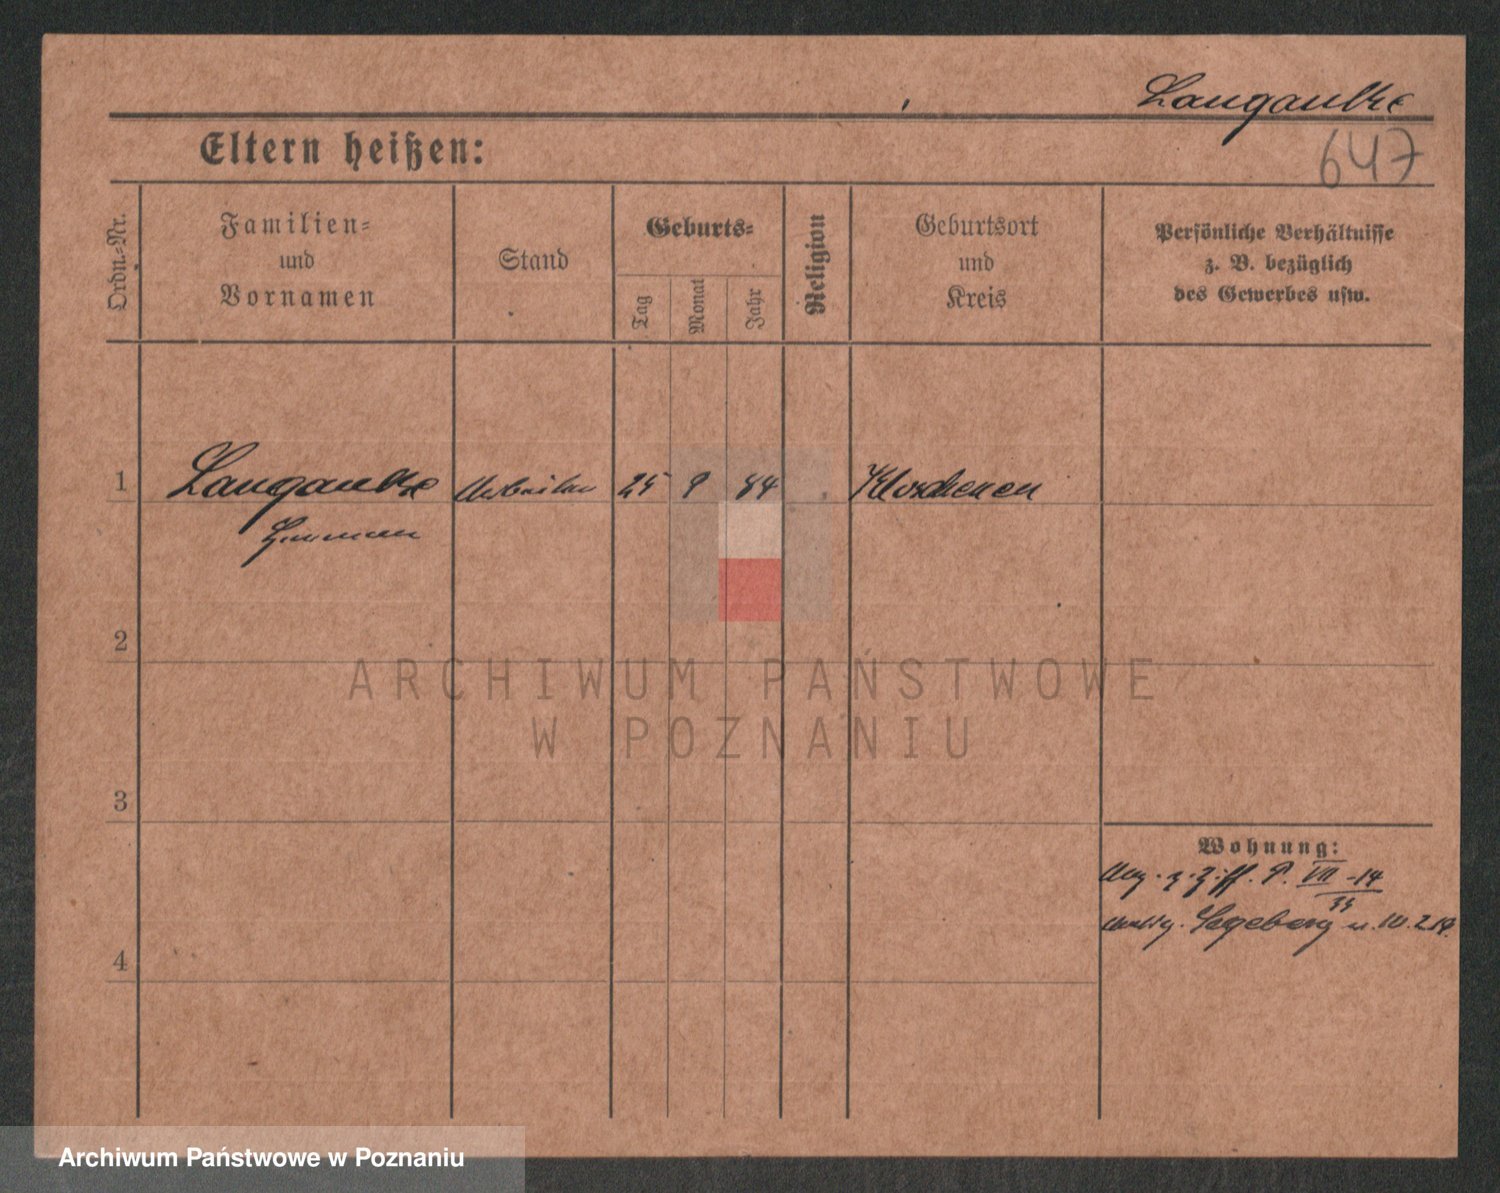 Langanke
647
Eltern heißen:
Ordn.-Nr.
Familien-
und
Vornamen
Stand
Geburts-
Tag
Monat
Jahr
Religion
Geburtsort
und
Kreis
Persönliche Verhältnisse
z. B. bezüglich
des Gewerbes usw.
1
Langanke Arbeiter 25 9 84
2
3
4
Wohnung:
Segeberg
ARCHIWUM PAŃSTWOWE
W POZNANIU
Archiwum Państwowe w Poznaniu